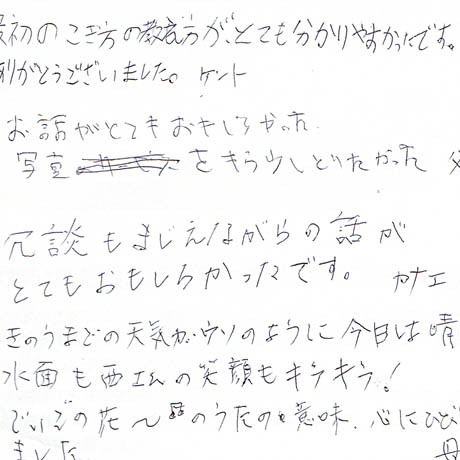 最初のこぎ方の教え方が、とても分かりやすかったです。
ありがとうございました。 ケント
お話がとてもおもしろかった
写真をもう少しとりたかった 父
冗談もまじえながらの話が
とてもおもしろかったです。 カナエ
きのうまでの天気がウソのように今日は晴
水面も西エんの笑顔もキラキラ!
でいごの花〜のうたの意味、心にひび
ました。 母